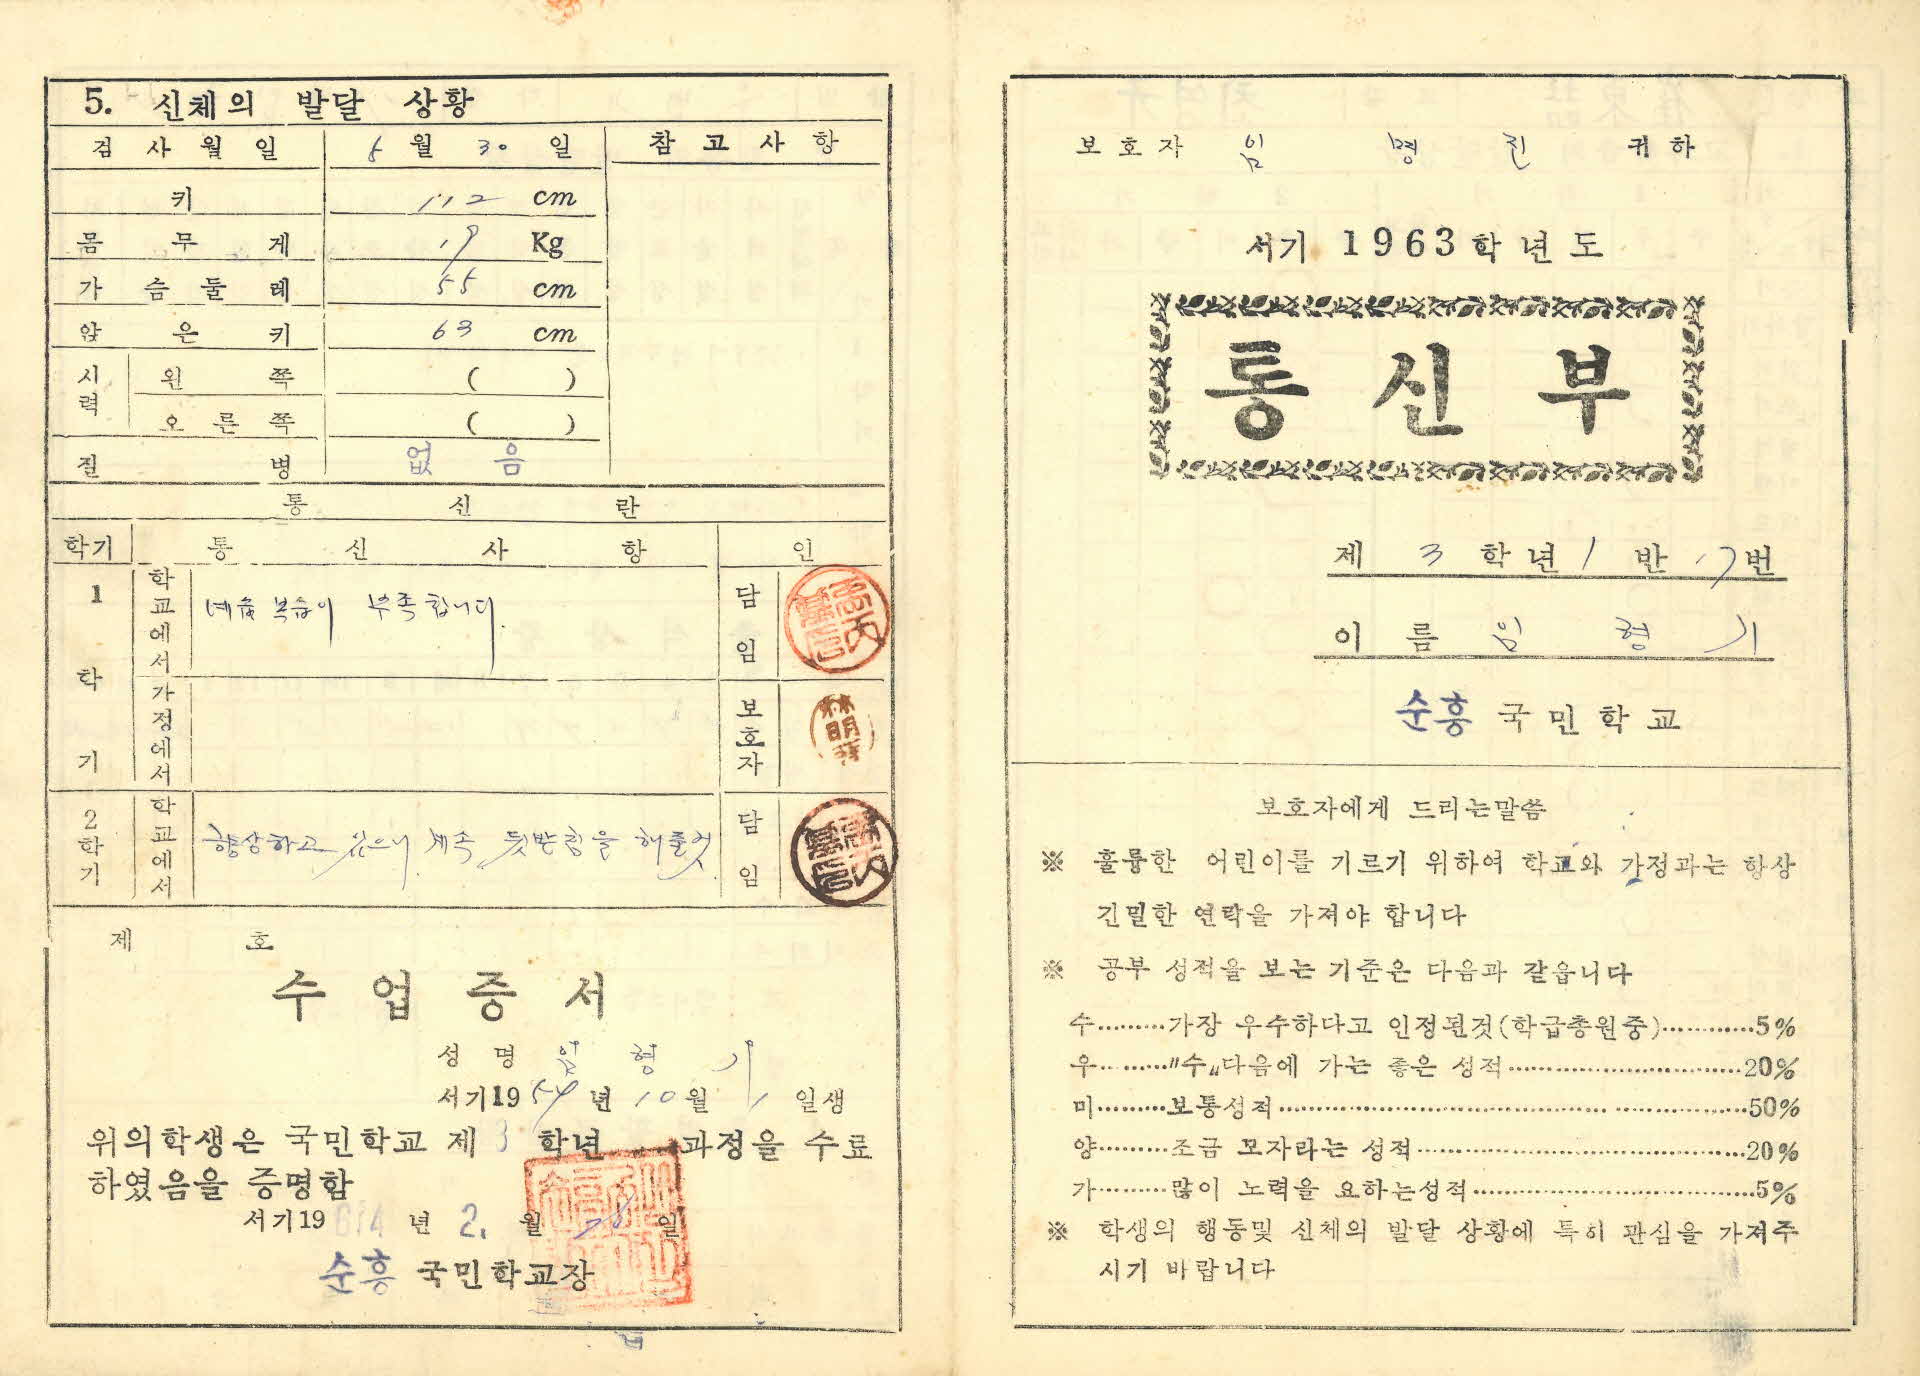 5. 신체의 발달 상황
검사월일 5월 30일 참고사항
키 112 cm
몸무게 19 Kg
가슴둘레 55 cm
앉은키 63 cm
시력 왼쪽 ( )
오른쪽 ( )
질병 없음
통신란
학기 통신사항 인
1학기 학교에서 예습 복습이 부족합니다. 담임
가정에서 보호자
2학기 학교에서 향상하고 있으니 계속 뒷받침을 해줄것 담임
제 호
수업증서
성명 임형기
서기1954년 10월 1일생
위의학생은 국민학교 제3학년 과정을 수료
하였음을 증명함
서기1964년 2.월 28일
순흥 국민학교장
보호자 임명진 귀하
서기 1963학년도
통신부
제 3학년 1반 17번
이름 임형기
순흥 국민학교
보호자에게 드리는말씀
※ 훌륭한 어린이를 기르기 위하여 학교와 가정과는 항상
긴밀한 연락을 가져야 합니다
※ 공부 성적을 보는 기준은 다음과 같읍니다
수………가장 우수하다고 인정된것(학급총원중)…………5%
우………〃수〟다음에 가는 좋은 성적…………………………20%
미………보통성적……………………………………………………50%
양………조금 모자라는 성적………………………………………20%
가………많이 노력을 요하는성적…………………………………5%
※ 학생의 행동및 신체의 발달 상황에 특히 관심을 가져주
시기 바랍니다